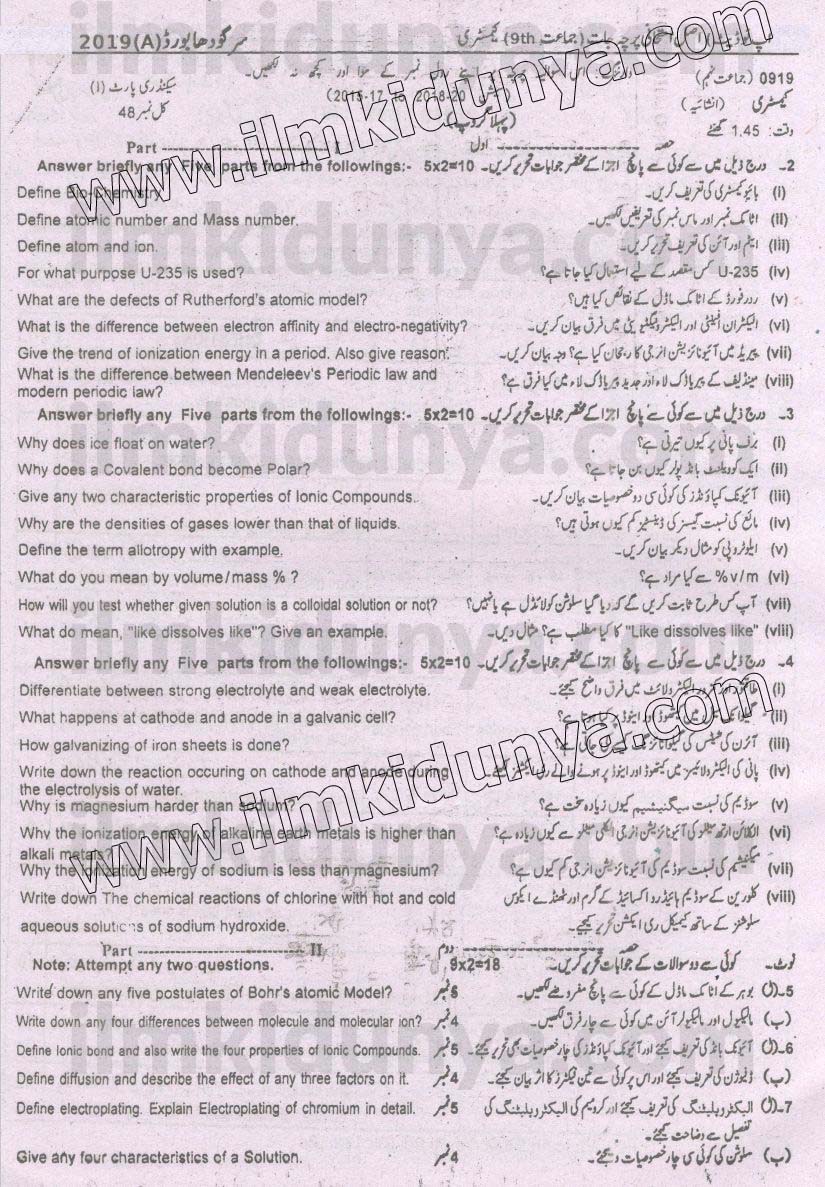 2019(A) سرگودھا بورڈ پرچہ جات (جماعت 9th) کیمسٹری
0919 (جماعت نہم) اپنے رول نمبر کے سوا اور کچھ نہ لکھیں۔ سیکنڈری پارٹ (I)
کیمسٹری (انشائیہ) کل نمبر 48
وقت: 1.45 گھنٹے (پہلا گروپ)
Part حصہ اول
Answer briefly any Five parts from the followings:- 5x2=10 2۔ درج ذیل میں سے کوئی سے پانچ اجزا کے مختصر جوابات تحریر کریں۔
Define Bio-Chemistry. (i) بائیو کیمسٹری کی تعریف کریں۔
Define atomic number and Mass number. (ii) اٹامک نمبر اور ماس نمبر کی تعریفیں لکھیں۔
Define atom and ion. (iii) ایٹم اور آئن کی تعریف تحریر کریں۔
For what purpose U-235 is used? (iv) U-235 کس مقصد کے لیے استعمال کیا جاتا ہے؟
What are the defects of Rutherford's atomic model? (v) ردرفورڈ کے اٹامک ماڈل کے نقائص کیا ہیں؟
What is the difference between electron affinity and electro-negativity? (vi) الیکٹران افینٹی اور الیکٹرونیگٹیویٹی میں فرق بیان کریں۔
Give the trend of ionization energy in a period. Also give reason. (vii) پیریڈ میں آئیونائزیشن انرجی کا رجحان کیا ہے؟ وجہ بیان کریں۔
What is the difference between Mendeleev's Periodic law and (viii) مینڈلیف کے پیریاڈک لاء اور جدید پیریاڈک لاء میں کیا فرق ہے؟
modern periodic law?
Answer briefly any Five parts from the followings:- 5x2=10 3۔ درج ذیل میں سے کوئی سے پانچ اجزا کے مختصر جوابات تحریر کریں۔
Why does ice float on water? (i) برف پانی پر کیوں تیرتی ہے؟
Why does a Covalent bond become Polar? (ii) ایک کوویلنٹ بانڈ پولر کیوں بن جاتا ہے؟
Give any two characteristic properties of Ionic Compounds. (iii) آئیونک کمپاؤنڈز کی کوئی سی دو خصوصیات بیان کریں۔
Why are the densities of gases lower than that of liquids. (iv) مائع کی نسبت گیسز کی ڈینسٹیز کم کیوں ہوتی ہیں؟
Define the term allotropy with example. (v) ایلوٹروپی کو مثال دیکر بیان کریں۔
What do you mean by volume/mass % ? (vi) %v/m سے کیا مراد ہے؟
How will you test whether given solution is a colloidal solution or not? (vii) آپ کس طرح ثابت کریں گے کہ دیا گیا سلوشن کولائڈل ہے یا نہیں؟
What do mean, "like dissolves like"? Give an example. (viii) "Like dissolves like" کا کیا مطلب ہے؟ مثال دیں۔
Answer briefly any Five parts from the followings:- 5x2=10 4۔ درج ذیل میں سے کوئی سے پانچ اجزا کے مختصر جوابات تحریر کریں۔
Differentiate between strong electrolyte and weak electrolyte. (i) الیکٹرولائٹ میں فرق واضح کیجئے۔
What happens at cathode and anode in a galvanic cell? (ii) کیتھوڈ اور اینوڈ پر کیا ہوتا ہے؟
How galvanizing of iron sheets is done? (iii) آئرن کی شیٹس کی
Write down the reaction occuring on cathode and anode during (iv) پانی کی الیکٹرولائسز میں کیتھوڈ اور اینوڈ پر ہونے والے ری ایکشنز لکھئے۔
the electrolysis of water.
Why is magnesium harder than sodium? (v) سوڈیم کی نسبت میگنیشیم کیوں زیادہ سخت ہے؟
Why the ionization energy of alkaline earth metals is higher than (vi) الکلائن ارتھ میٹلز کی آئیونائزیشن انرجی الکلی میٹلز سے کیوں زیادہ ہے؟
alkali metals?
Why the ionization energy of sodium is less than magnesium? (vii) میگنیشیم کی نسبت سوڈیم کی آئیونائزیشن انرجی کم کیوں ہے؟
Write down The chemical reactions of chlorine with hot and cold (viii) کلورین کے سوڈیم ہائیڈرو آکسائیڈ کے گرم اور ٹھنڈے ایکوس
aqueous solutions of sodium hydroxide. سلوشنز کے ساتھ کیمیکل ری ایکشن تحریر کیجئے۔
Part II حصہ دوم
Note: Attempt any two questions. 9x2=18 نوٹ۔ کوئی سے دو سوالات کے جوابات تحریر کریں۔
Write down any five postulates of Bohr's atomic Model? 5نمبر 5۔(ا) بوہر کے اٹامک ماڈل کے کوئی سے پانچ مفروضے لکھیں۔
Write down any four differences between molecule and molecular ion? 4نمبر (ب) مالیکیول اور مالیکیولر آئن میں کوئی سے چار فرق لکھیں۔
Define Ionic bond and also write the four properties of Ionic Compounds. 5نمبر 6۔(ا) آئیونک بانڈ کی تعریف کیجئے اور آئیونک کمپاؤنڈز کی چار خصوصیات بھی تحریر کیجئے۔
Define diffusion and describe the effect of any three factors on it. 4نمبر (ب) ڈفیوژن کی تعریف کیجئے اور اس پر کوئی سے تین فیکٹرز کا اثر بیان کیجئے۔
Define electroplating. Explain Electroplating of chromium in detail. 5نمبر 7۔(ا) الیکٹروپلیٹنگ کی تعریف کیجئے اور کرومیم کی الیکٹروپلیٹنگ کی
تفصیل سے وضاحت کیجئے۔
Give any four characteristics of a Solution. 4نمبر (ب) سلوشن کی کوئی سی چار خصوصیات دیجئے۔
www.ilmkidunya.com
www.ilmkidunya.com